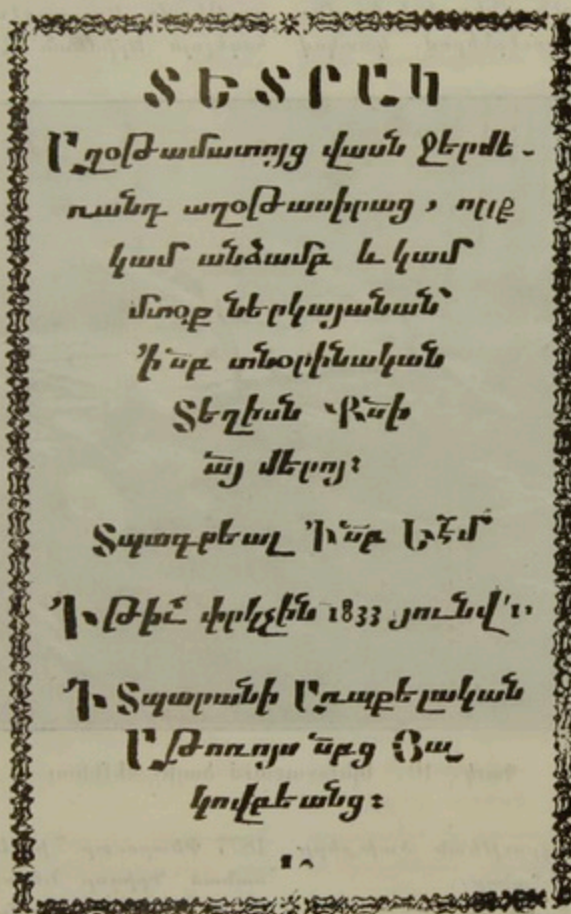 ՏԵՏՐԱԿ
Աղօթամատոյց վասն ջերմե-
ռանդ աղօթասիրաց, որք
կամ անձամբ և կամ
մտօք ներկայանան՝
՚ի սբ տնօրինական
Տեղիսն Քսի
այ մերոյ։
Տպագրեալ ՚Ի սբ Եղէմ
՚Ի թիւ փրկչին 1833 յունվ՛ 1։
՚Ի Տպարանի Առաքելական
Աթոռոյս սրբց Յա_
կովբեանց։